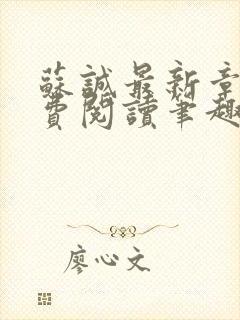 蘇誠最新章
費閱讀筆趣
廖心文